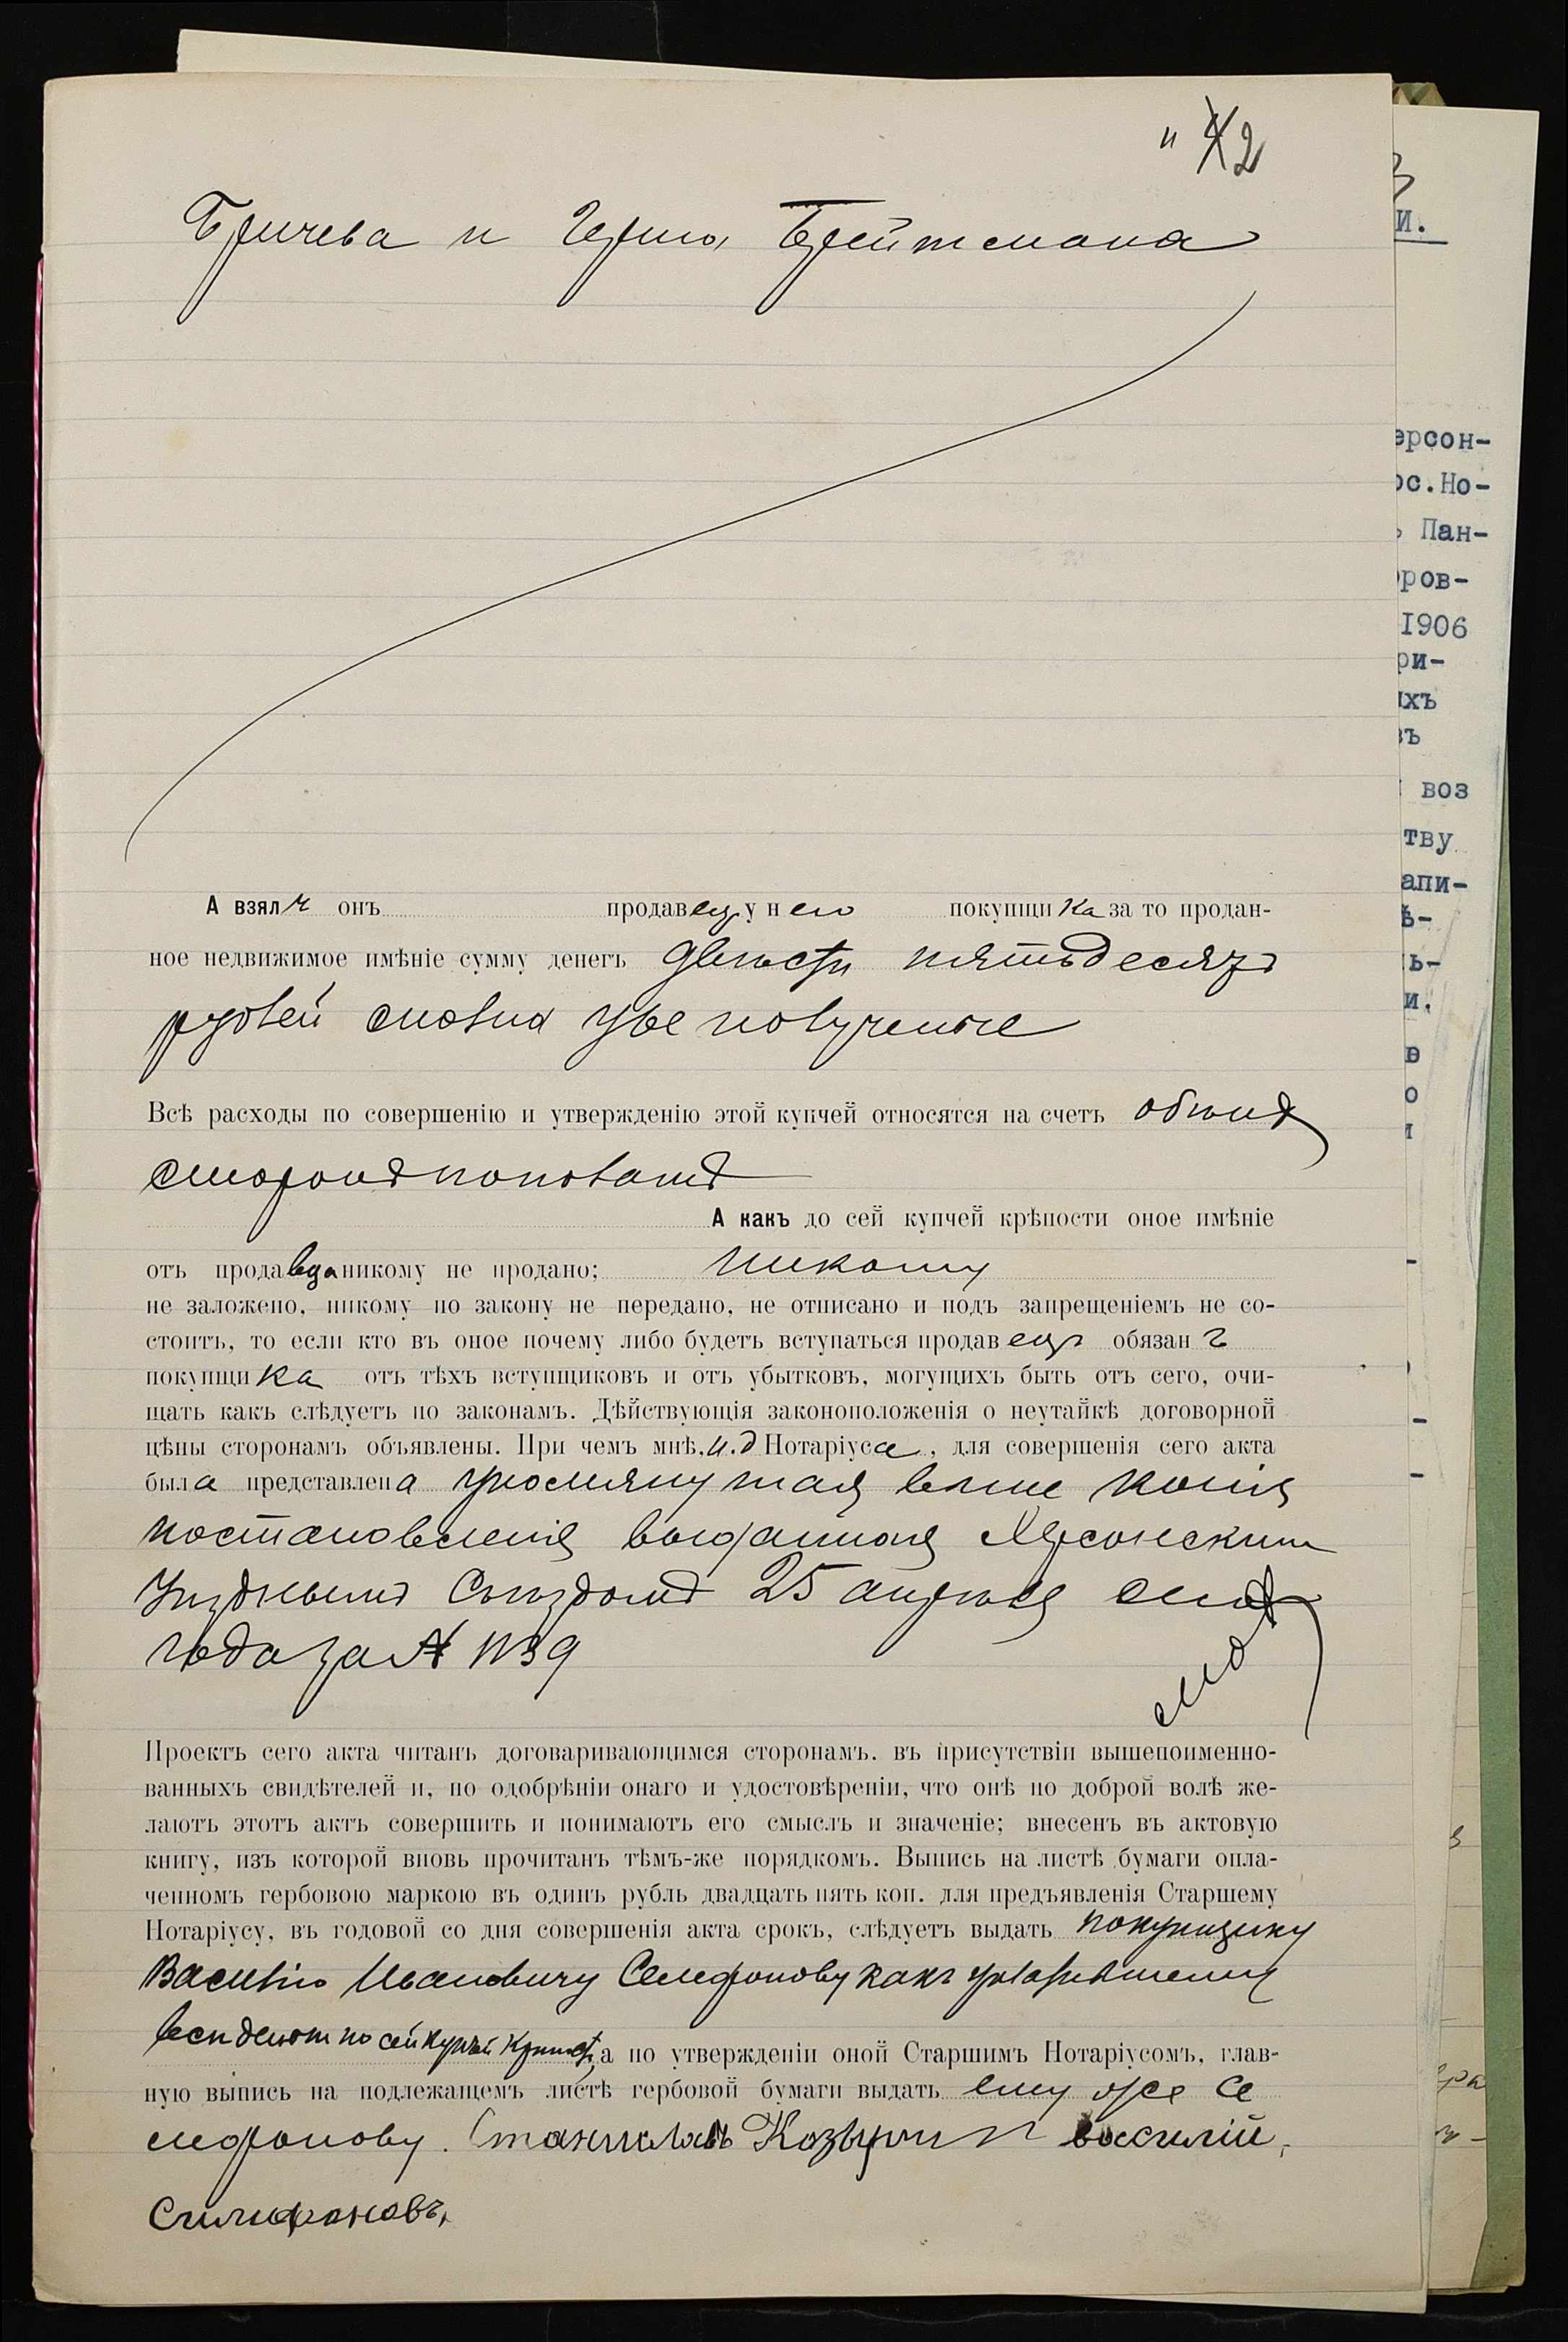 " 42
Бричева и Герша Брейтмана
И.
ерсон-
ос.Но-
ъ Пан-
ров-
1906
ри-
ихъ
въ
воз
тву
апи-
ь-
и.
А взялъ онъ продавецъ у него покупщика за то продан-
ное недвижимое имѣніе сумму денегъ двѣсти пятьдесятъ
рублей сполна уже полученые
Всѣ расходы по совершенію и утвержденію этой купчей относятся на счетъ обѣихъ
сторонъ пополамъ
А какъ до сей купчей крѣпости оное имѣніе
отъ продавца никому не продано; никому
не заложено, никому по закону не передано, не отписано и подъ запрещеніемъ не со-
стоитъ, то если кто въ оное почему либо будетъ вступаться продавецъ обязанъ
покупщика отъ тѣхъ вступщиковъ и отъ убытковъ, могущихъ быть отъ сего, очи-
щать какъ слѣдуетъ по законамъ. Дѣйствующія законоположенія о неутайкѣ договорной
цѣны сторонамъ объявлены. При чемъ мнѣ, и.д Нотаріуса, для совершенія сего акта
была представлена упомянутая выше копія
постановленія выданная Херсонскимъ
Уѣзднымъ Съѣздомъ 25 апрѣля сего
года за № 1139
Проектъ сего акта читанъ договаривающимся сторонамъ. въ присутствіи вышепоименно-
ванныхъ свидѣтелей и, по одобрѣніи онаго и удостовѣреніи, что онѣ по доброй волѣ же-
лаютъ этотъ актъ совершить и понимаютъ его смыслъ и значеніе; внесенъ въ актовую
книгу, изъ которой вновь прочитанъ тѣмъ-же порядкомъ. Выпись на листѣ бумаги опла-
ченномъ гербовою маркою въ одинъ рубль двадцать пять коп. для предъявленія Старшему
Нотаріусу, въ годовой со дня совершенія акта срокъ, слѣдуетъ выдать покупщику
Василію Ивановичу Селифонову какъ уплатившему
всѣ деньги по сей купчей крѣпости, а по утвержденіи оной Старшимъ Нотаріусомъ, глав-
ную выпись на подлежащемъ листѣ гербовой бумаги выдать ему же Се
лифонову. Станиславъ василій,
Силифоновъ,